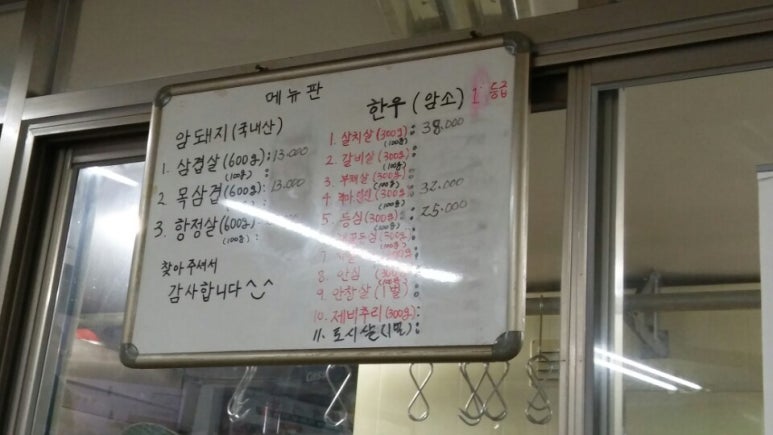 메뉴판
암돼지(국내산)
1. 삼겹살(600g): 13.000
(100g) :
2. 목삼겹(600g): 13.000
(100g) :
3. 항정살(600g):
(100g) :
찾아주셔서
감사합니다 ^_^
한우(암소) 1등급
1. 살치살(300g): 38.000
(100g)
2. 갈비살(300g):
(100g)
3. 부채살(300g):
(100g)
4. (300g): 32.000
(100g)
5. 등심(300g): 25.000
(100g)
(300g):
(100g)
7.
8. 안심 (300g)
(100g)
9. 안창살(1벌):
10. 제비추리(300g):
11. 토시살(1벌):